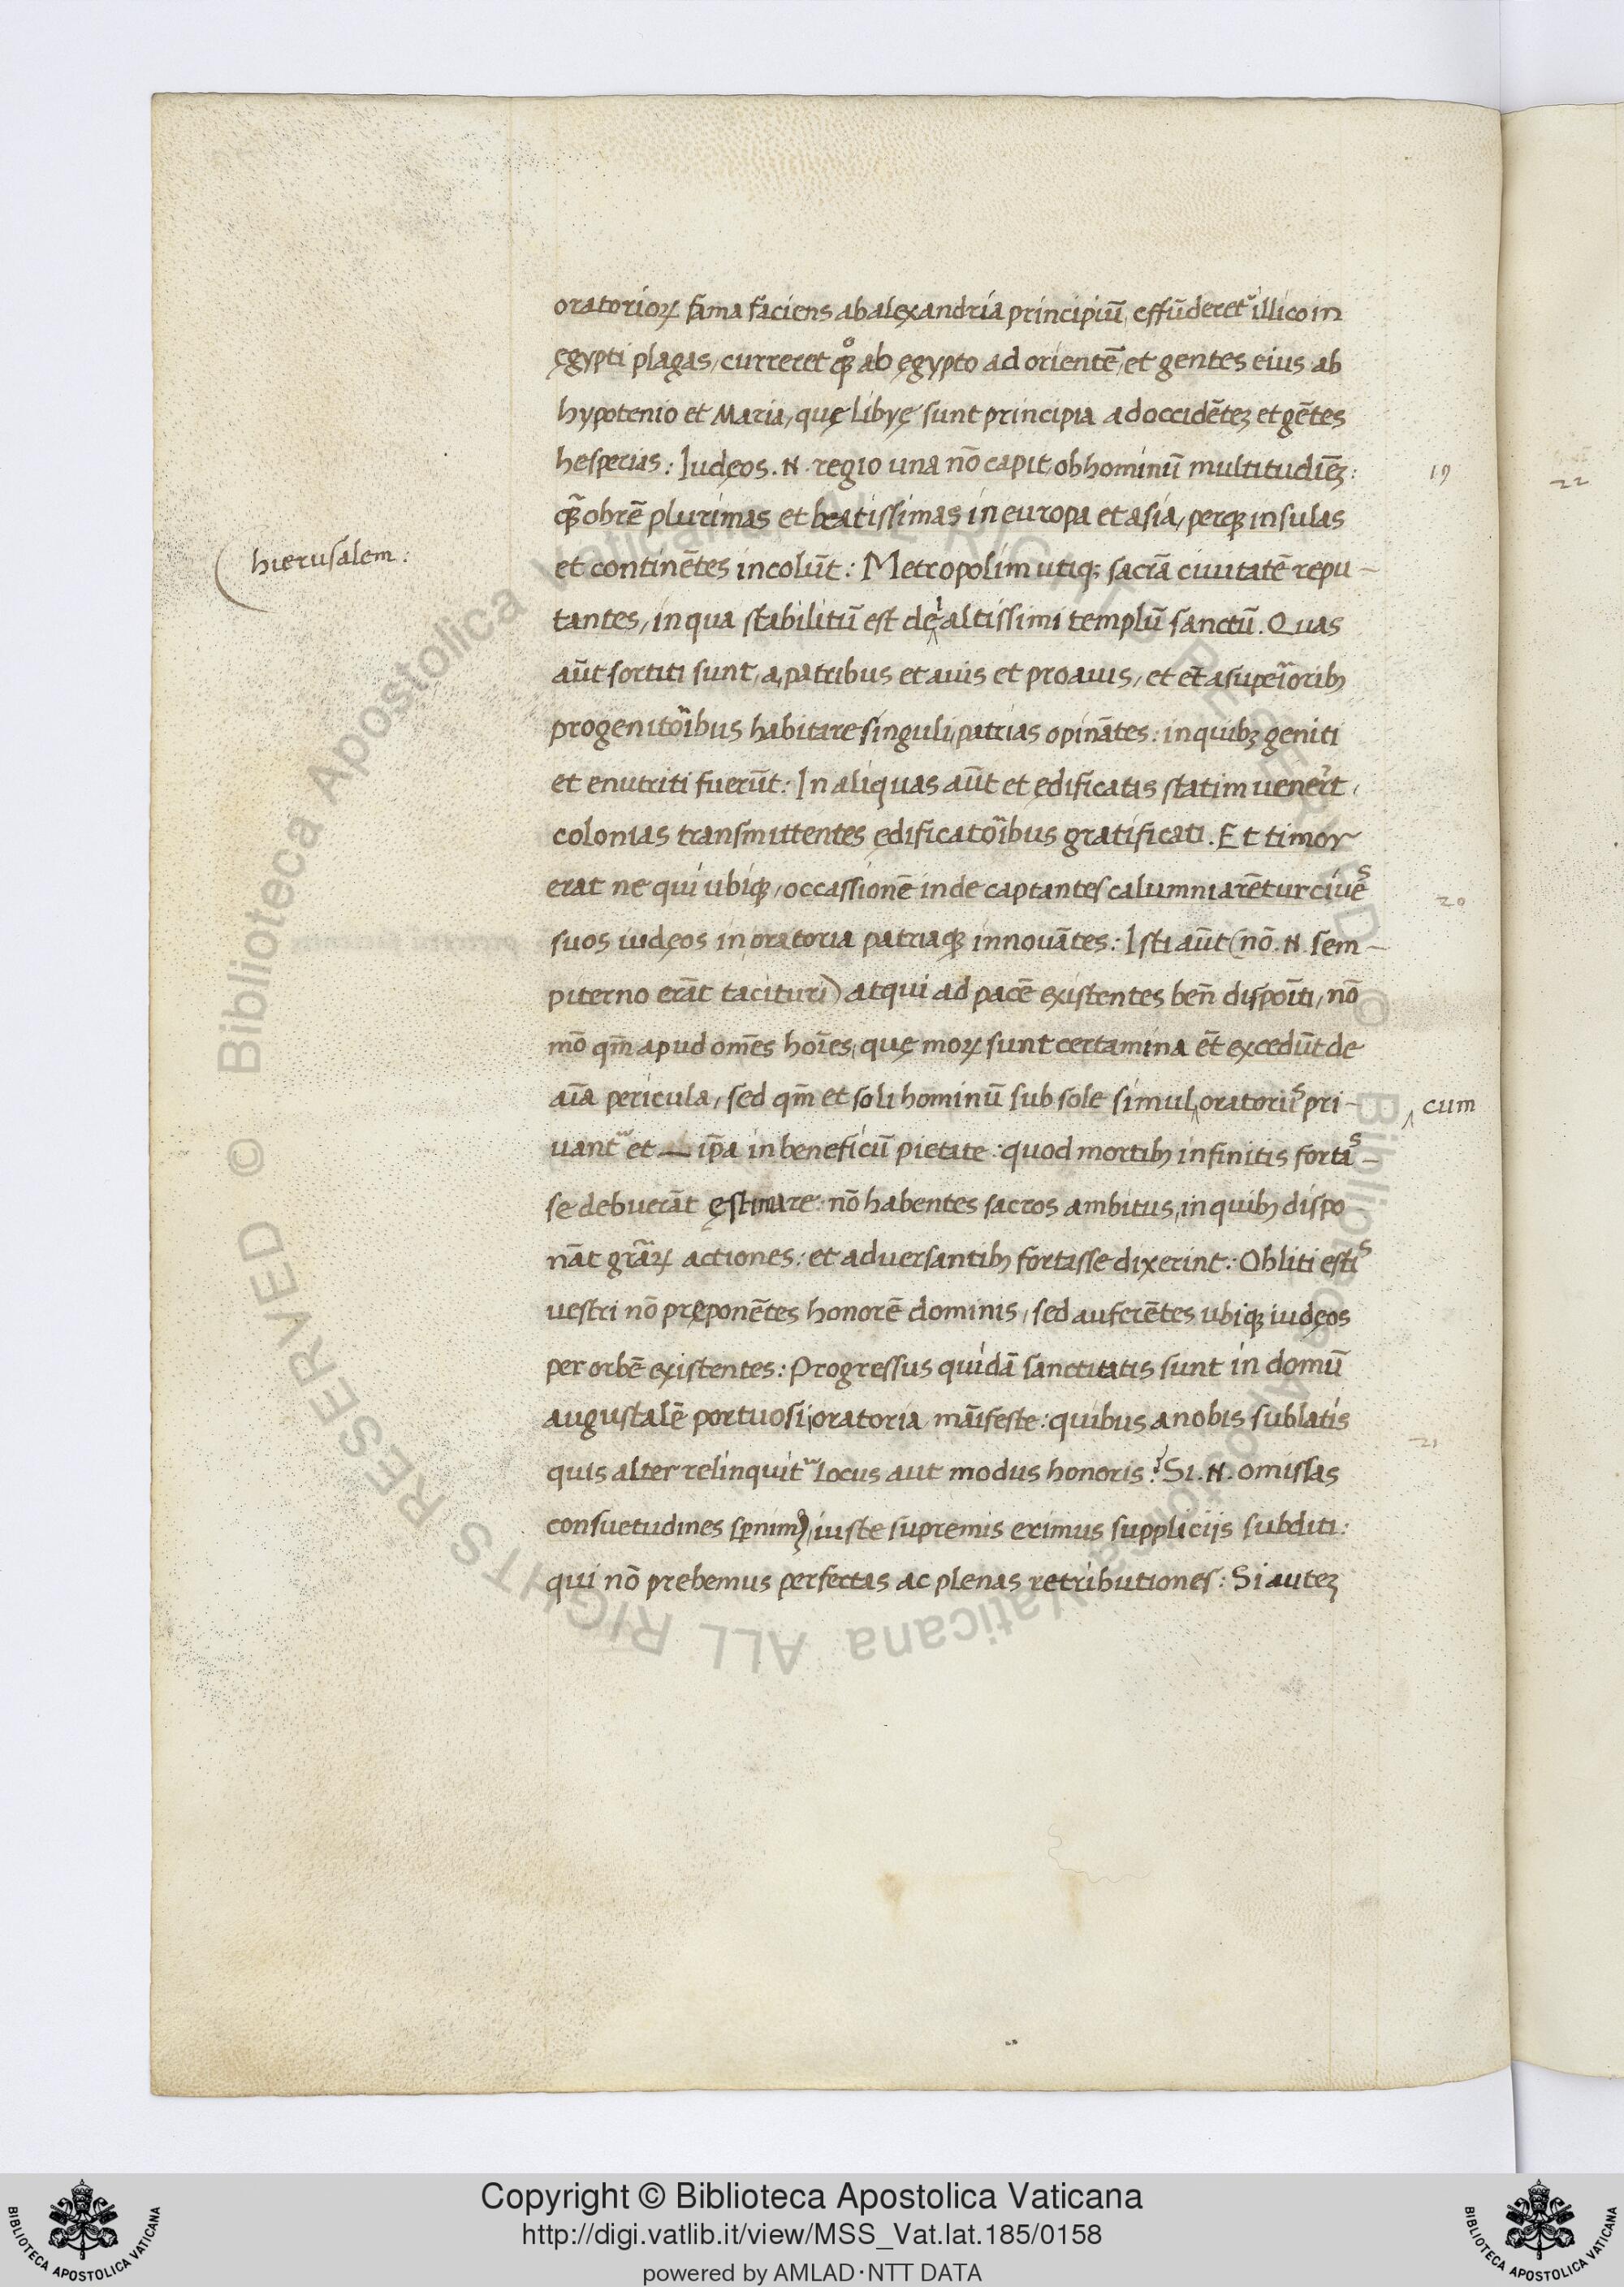 oratorioꝝ fama faciens ab alexandria principiũ, effũderet᷑ illico in
ęgypti plagas, curreret qꝫ° ab ęgypto ad orientẽ, et gentes eius ab
hypotenio et Maria, quę libyę sunt principia ad occidẽteꝫ et gẽtes
hesperias: Iudęos .N. regio una nõ capit, ob hominũ multitudiẽꝫ:
19
quãobrẽ plurimas et beatissimas in europa et asia, perqꝫ insulas
et continẽtes incolũt: Metropolim utiqꝫ sacrã ciuitatẽ repu-
hierusalem:
tantes, in qua stabilitũ est dęi altissimi templũ sanctũ. Quas
aũt sortiti sunt, a patribus et auis et proauis, et ẽt a supẽioribꝫ
progenitoĩbus habitare singuli, patrias opinãtes: in quibꝫ geniti
et enutriti fuerũt: In aliquas aũt et ędificatis statim uener̃t,
colonias transmittentes ędificatoĩbus gratificati. Et timor
erat ne qui ubiqꝫ, occassionẽ inde captantes calumniarẽtur ciues
20
suos iudęos in oratoria patriaqꝫ innouãtes: Isti aũt (nõ .N. sem-
piterno erãt tacituri) atqui ad pacẽ existentes beñ dispoĩti, nõ
mõ qm̃ apud om̃es hoĩes, quę moꝝ sunt certamina ẽt excedũt de
aĩa pericula, sed qm̃ et soli hominũ sub sole simul ‸ oratoriis pri-
‸ cum
uant᷑ et ip̃a in beneficũ pietate: quod mortibꝫ infinitis fortas-
se debuerãt ęstimare: nõ habentes sacros ambitus, in quibꝫ dispo
nãt grãꝝ actiones: et aduersantibꝫ fortasse dixerint: Obliti estis
uestri nõ pręponẽtes honorẽ dominis, sed auferẽtes ubiqꝫ iudęos
per orbẽ existentes: Progressus quidã sanctitatis sunt in domũ
augustalẽ portuosi, oratoria mãifeste: quibus a nobis sublatis
21
quis alter relinquit᷑ locus aut modus honoris? Si .N. omissas
consuetudines sꝑnimꝰ, iuste supremis erimus supplicijs subditi:
qui nõ prebemus perfectas ac plenas retributiones: Si auteꝫ
22
Copyright © Biblioteca Apostolica Vaticana
http://digi.vatlib.it/view/MSS_Vat.lat.185/0158
powered by AMLAD·NTT DATA
BIBLIOTECA APOSTOLICA VATICANA
BIBLIOTECA APOSTOLICA VATICANA
© Biblioteca Apostolica Vaticana ALL RIGHTS RESERVED © Biblioteca Apostolica Vaticana ALL RIGHTS RESERVED